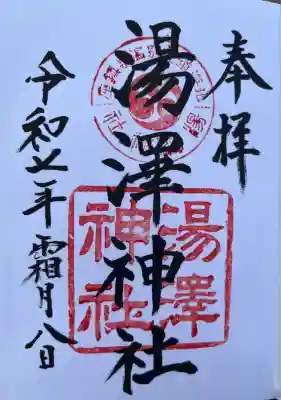 奉拝
湯澤神社
令和七年霜月八日
湯澤
神社